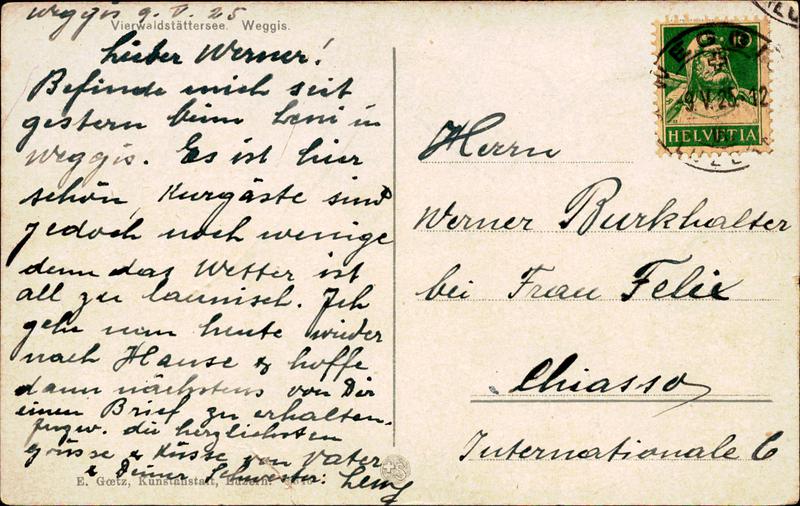 Weggis 9. V. 25
Vierwaldstättersee. Weggis.
Lieber Werner!
Befinde mich seit
gestern beim Leni in
Weggis. Es ist hier
schön, Kurgäste sind
jedoch noch wenige
denn das Wetter ist
all zu launisch. Ich
geh nun heute wieder
nach Hause & hoffe
dann nächstens von Dir
einen Brief zu erhalten.
die herzlichsten
Grüsse & Küsse von Vater
& Deiner Schwester. Leny
E. Gœtz, Kunstanstalt, Luzern.
WEGGIS
9.V.25-12
10
HELVETIA
Herrn
Werner Burkhalter
bei Frau Felix
Chiasso
Internationale 6